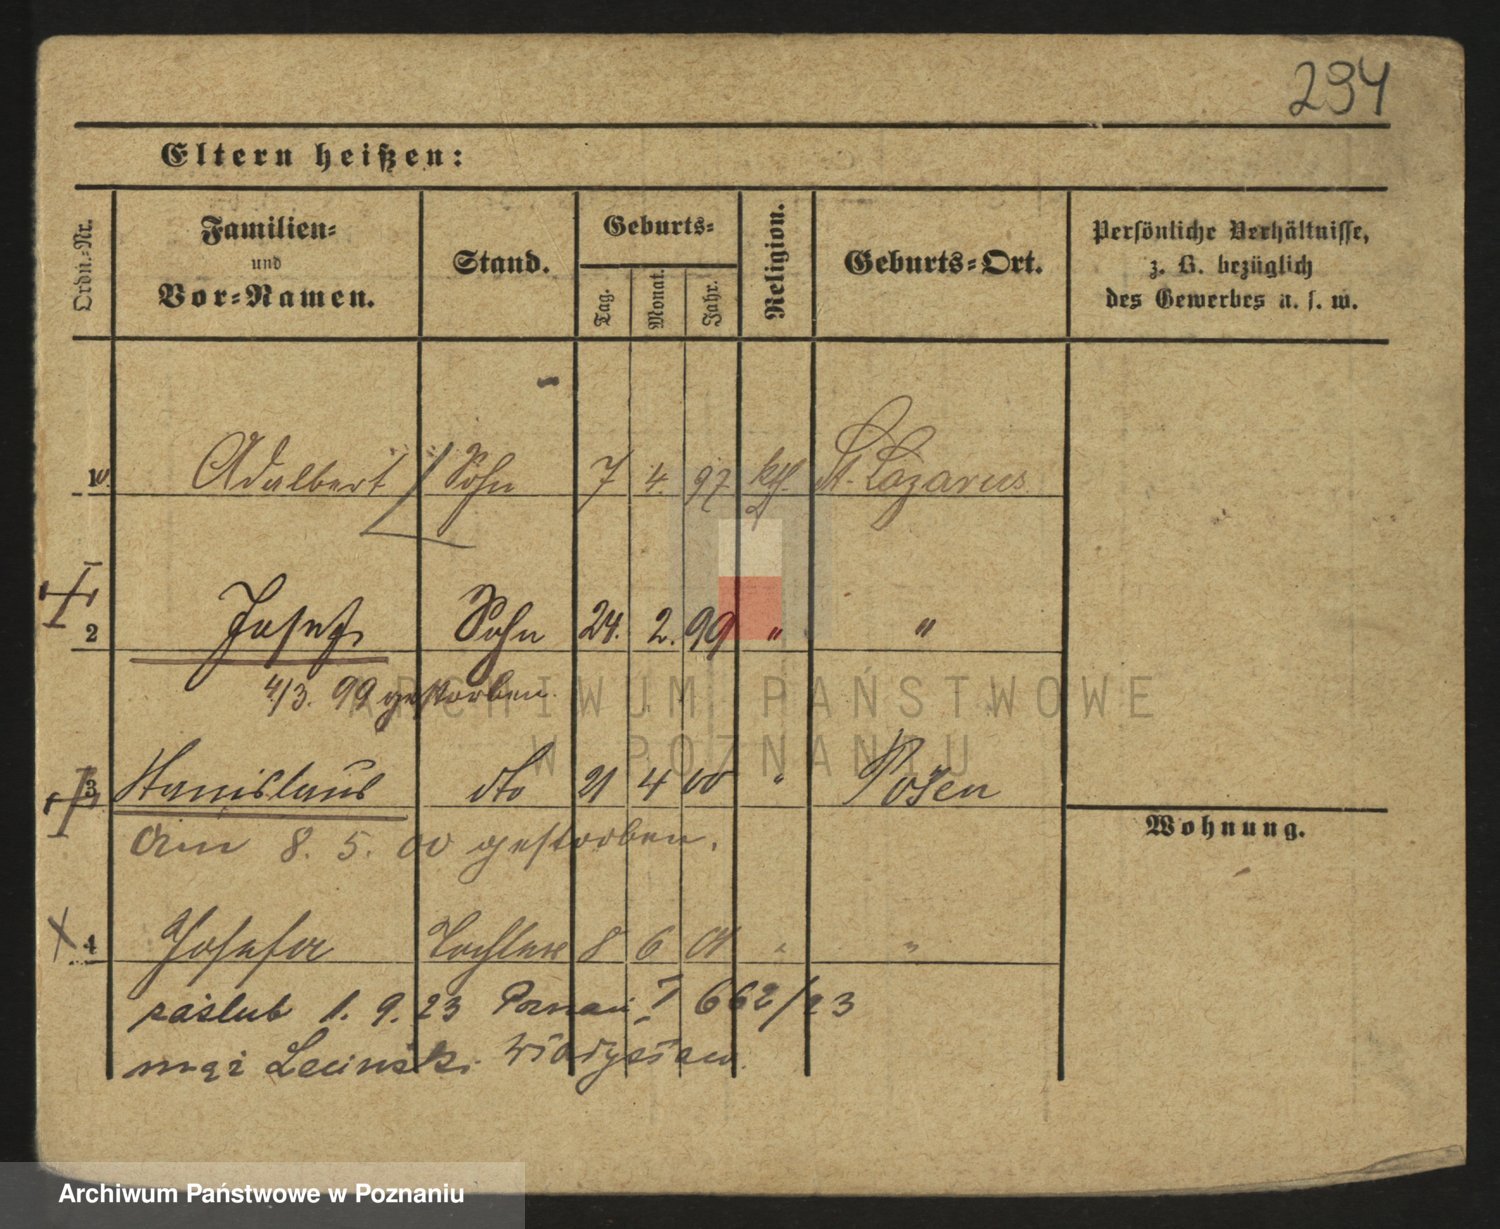 294
Eltern heißen:
Ordn.-Nr.
Familien-
und
Vor-Namen.
Stand.
Geburts-
Tag.
Monat.
Jahr.
Religion.
Geburts-Ort.
Persönliche Verhältnisse,
z. B. bezüglich
des Gewerbes u. s. w.
Adalbert Sohn 7 4. 97 kth. St. Lazarus
2 Josef Sohn 24. 2. 99 " "
4/3. 99 gestorben.
ARCHIWUM PAŃSTWOWE
W POZNANIU
3 Stanislaus dto 21 4 00 " Posen
Am 8. 5. 00 gestorben.
Wohnung.
4 Josefa Tochter 8 6 01 " "
zaślub 1. 9. 23 Poznań I 662/23
mąż Leciński Władysław.
Archiwum Państwowe w Poznaniu